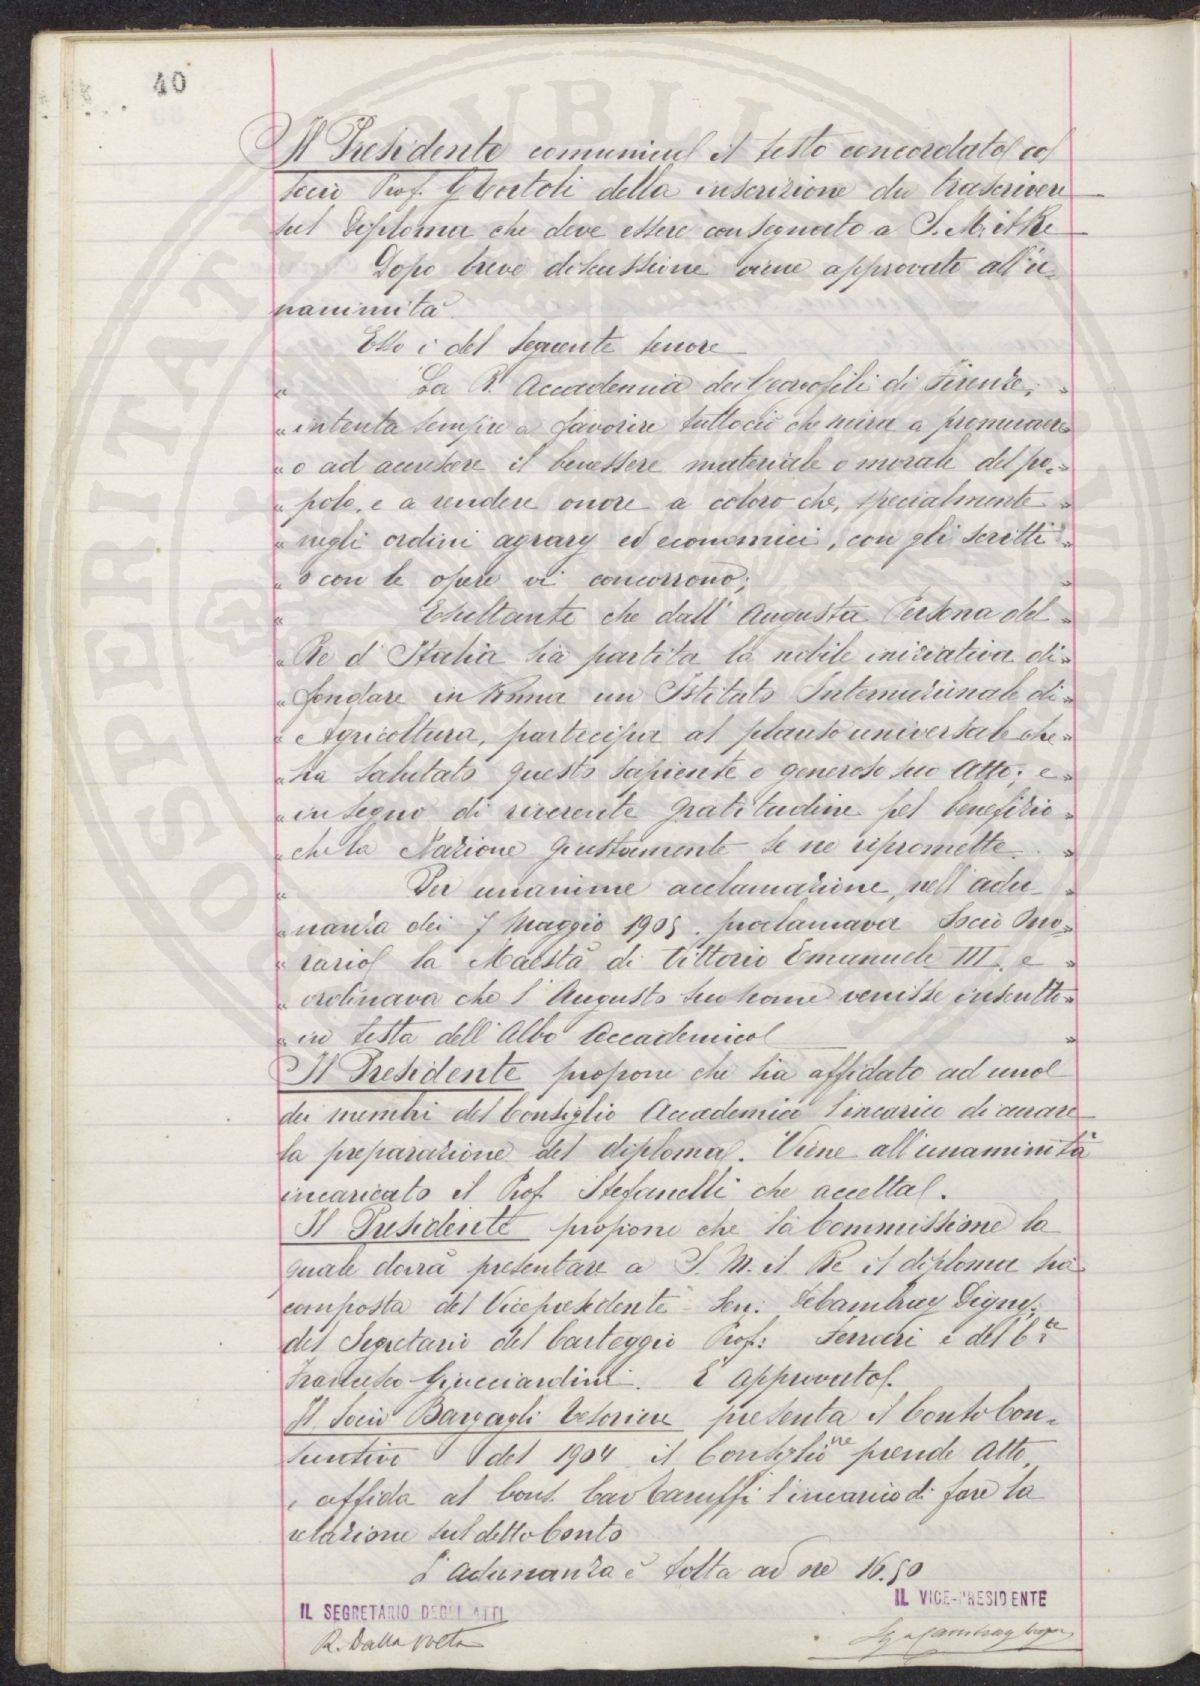 40
Il Presidente comunica il testo concordato col
socio Prof. Bertoli della inscrizione da trascrivere
sul Diploma che deve essere consegnato a S. M. il Re
Dopo breve discussione viene approvato all'u-
nanimità.
Esso è del seguente tenore
" La R. Accademia dei Georgofili di Firenze, "
" intenta sempre a favorire tuttociò che mira a promuovere "
" o ad accrescere il benessere materiale o morale del po- "
" polo, e a rendere onore a coloro che, specialmente "
" negli ordini agrarj ed economici, con gli scritti "
" o con le opere vi concorrono; "
" Esultante che dall'Augusta Persona del "
" Re d'Italia sia partita la nobile iniziativa di "
" fondare in Roma un Istituto Internazionale di "
" Agricoltura, partecipa al plauso universale che "
" ha salutato questo sapiente e generoso suo Atto; e "
" in segno di riverente gratitudine pel benefizio "
" che la Nazione giustamente se ne ripromette. "
" Per unanime acclamazione, nell'adu "
" nanza dei 7 Maggio 1905. proclamava Socio Ono- "
" rario la Maestà di Vittorio Emanuele III, e "
" ordinava che l'Augusto suo nome venisse inscritto "
" in testa dell'Albo Accademico "
Il Presidente propone che sia affidato ad uno
dei membri del Consiglio Accademico l'incarico di curare
la preparazione del diploma. Viene all'unanimità
incaricato il Prof. Stefanelli che accetta.
Il Presidente propone che la Commissione la
quale dovrà presentare a S. M. il Re il diploma sia
composta del Vicepresidente Sen: Decambray Digny;
del Segretario del Carteggio Prof: Ferrari e del C.te
Francesco Guicciardini. È approvato.
Il Socio Bargagli tesoriere presenta il Conto Con-
suntivo del 1904 il Consiglio ne prende Atto
e affida al Cons. Cav Caruffi l'incarico di fare la
relazione sul detto Conto
L'adunanza è tolta ad ore 16.50
IL SEGRETARIO DEGLI ATTI
IL VICE-PRESIDENTE
R. Dalla Volta
Cambray Digny